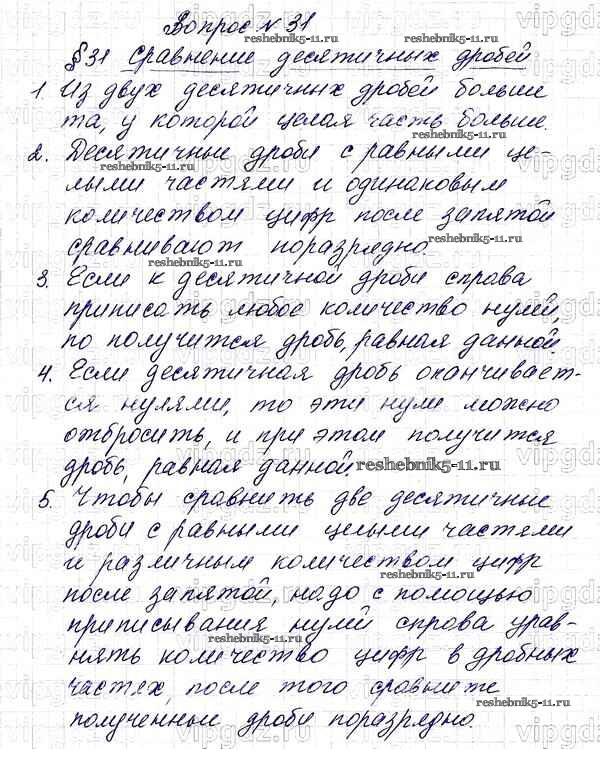 Вопрос № 31
§31 Сравнение десятичных дробей
1. Из двух десятичных дробей больше
та, у которой целая часть больше.
2. Десятичные дроби с равными це-
лыми частями и одинаковым
количеством цифр после запятой
сравнивают поразрядно.
3. Если к десятичной дроби справа
приписать любое количество нулей,
то получится дробь, равная данной.
4. Если десятичная дробь оканчивает-
ся нулями, то эти нули можно
отбросить, и при этом получится
дробь, равная данной.
5. Чтобы сравнить две десятичные
дроби с равными целыми частями
и различным количеством цифр
после запятой, надо с помощью
приписывания нулей справа урав-
нять количество цифр в дробных
частях, после того сравните
полученные дроби поразрядно.
reshebnik5-11.ru
reshebnik5-11.ru
reshebnik5-11.ru
reshebnik5-11.ru
reshebnik5-11.ru
reshebnik5-11.ru
reshebnik5-11.ru
reshebnik5-11.ru
reshebnik5-11.ru
reshebnik5-11.ru